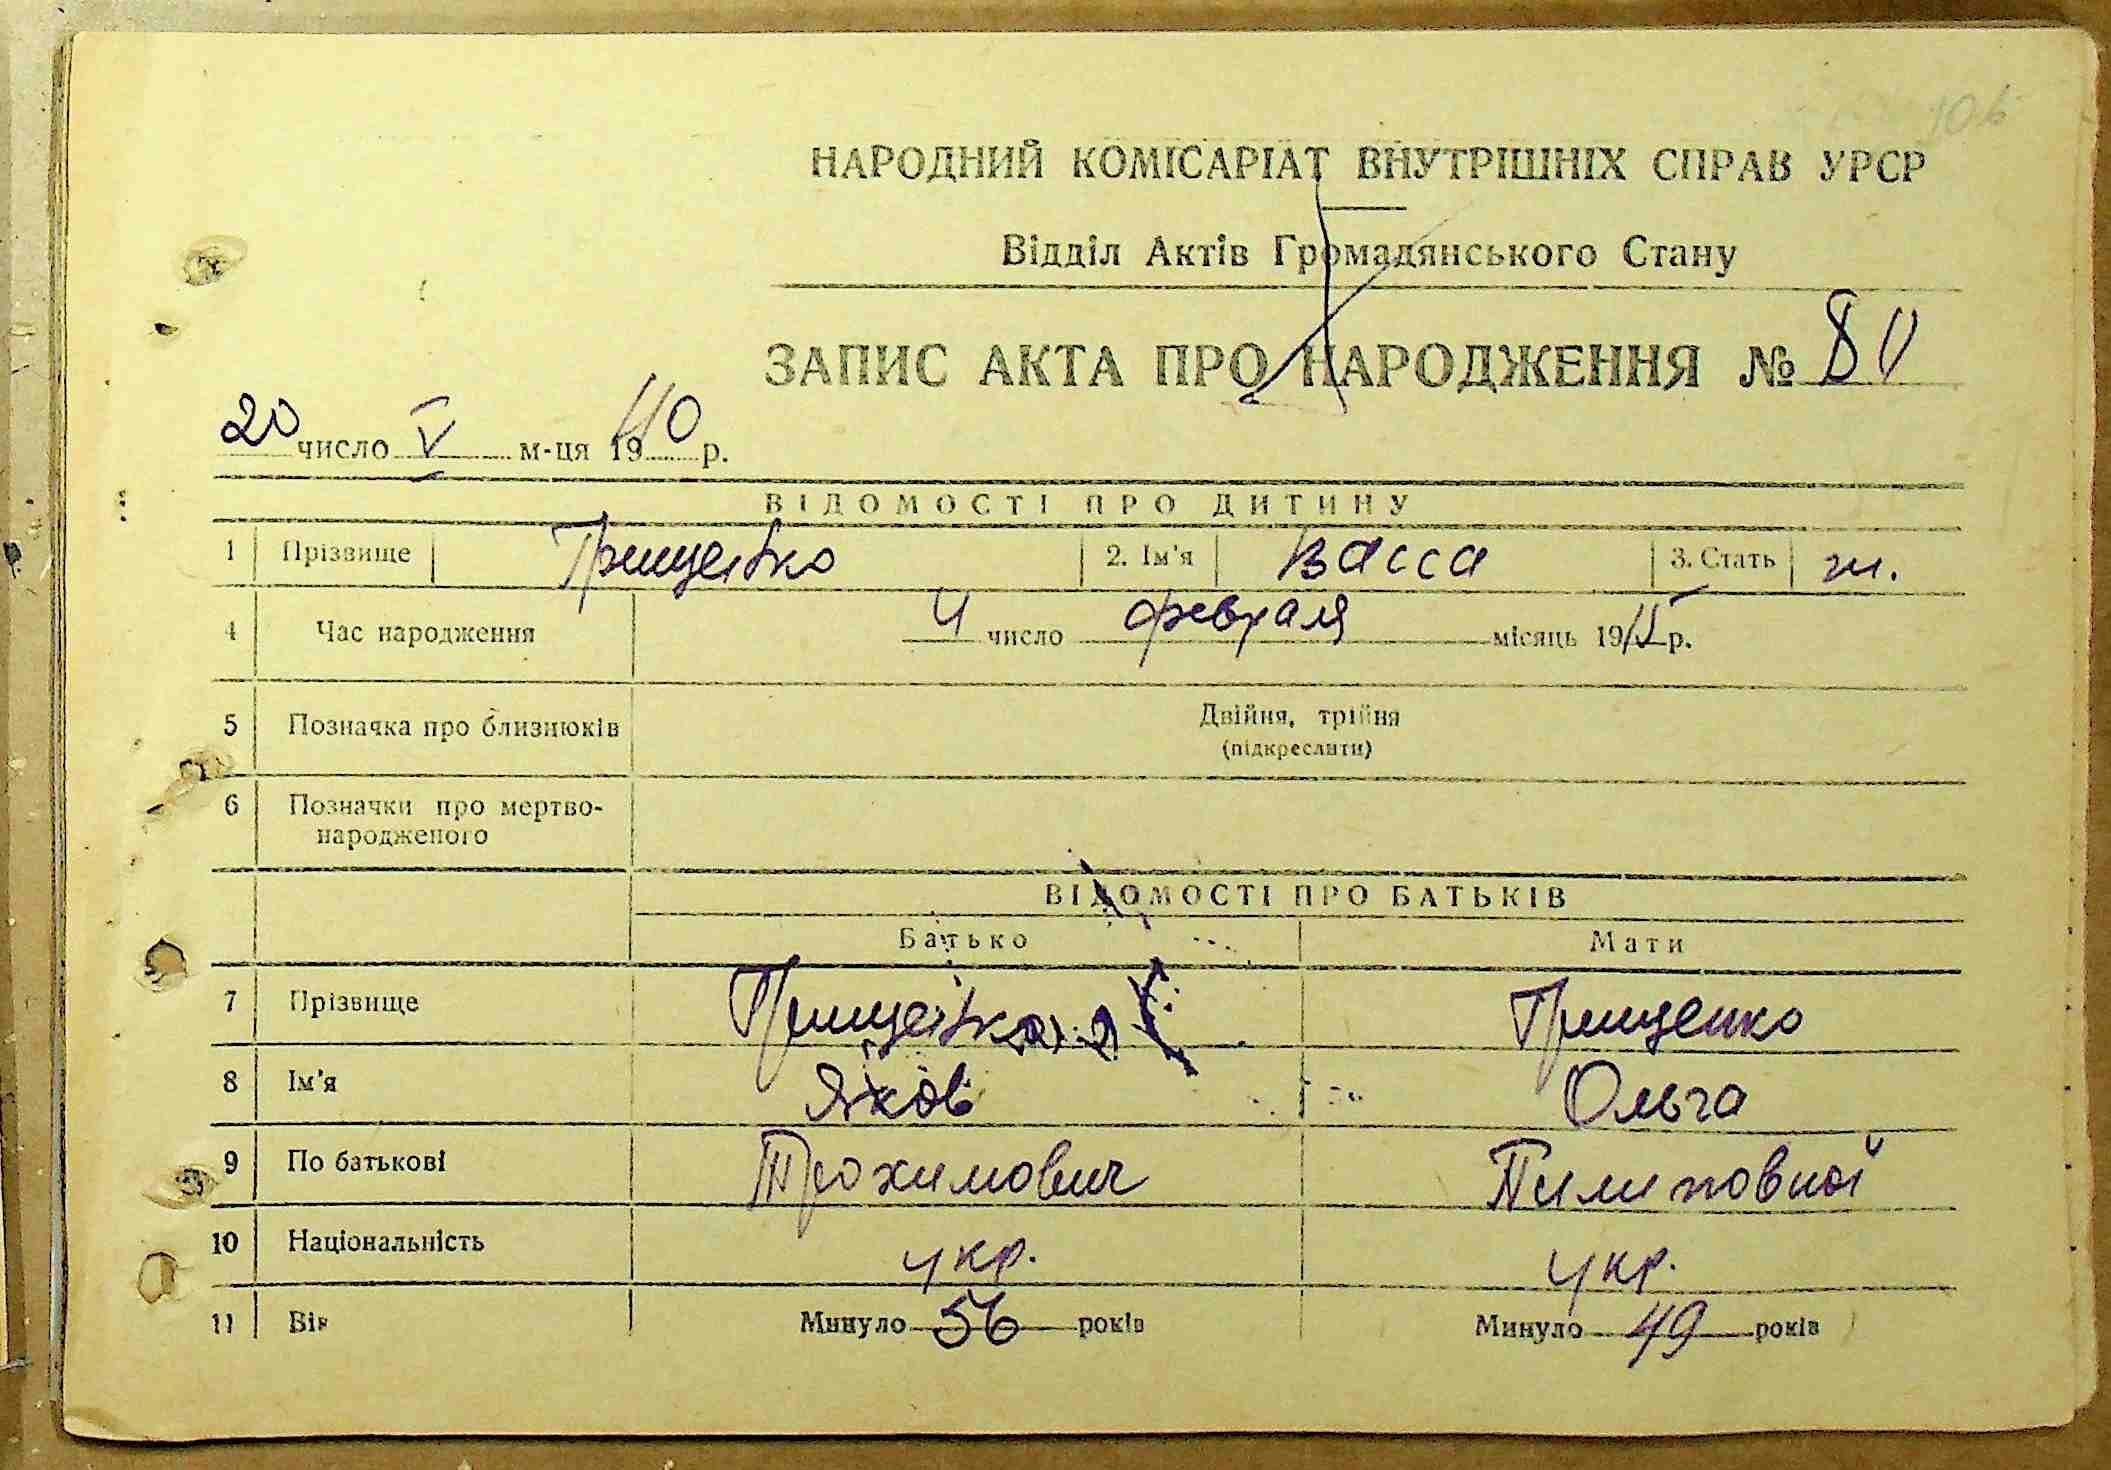 106
НАРОДНИЙ КОМІСАРІАТ ВНУТРІШНІХ СПРАВ УРСР
Відділ Актів Громадянського Стану
ЗАПИС АКТА ПРО НАРОДЖЕННЯ № 80
20 число V м-ця 1940 р.
ВІДОМОСТІ ПРО ДИТИНУ
1 Прізвище Грищенко 2. Ім'я Васса 3. Стать ж.
4 Час народження 4 число февраля місяць 1915 р.
5 Позначка про близнюків Двійня, трійня
(підкреслити)
6 Позначки про мертво-
народженого
ВІДОМОСТІ ПРО БАТЬКІВ
Батько Мати
7 Прізвище Грищенко Грищенко
8 Ім'я Яков Ольга
9 По батькові Трохимович Пилиповна
10 Національність укр. укр.
11 Вік Минуло 56 років Минуло 49 років